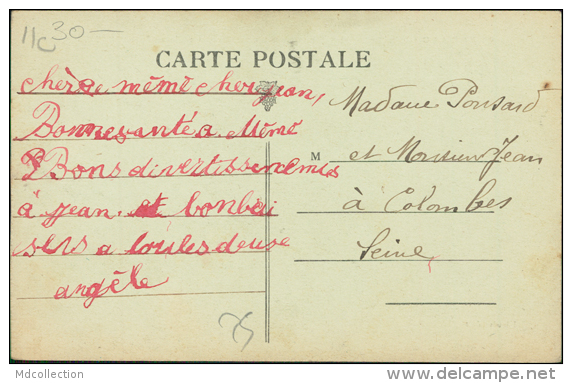 11c 30-
CARTE POSTALE
chère même cher jean,
Bonne santé a Même
Bons divertissenemis
à jean et bonbai
sers a toutes deuse
angèle
M
Madame Ponsard
et Monsieur Jean
à Colombes
Seine
75
Mdcollection
delcampe.net